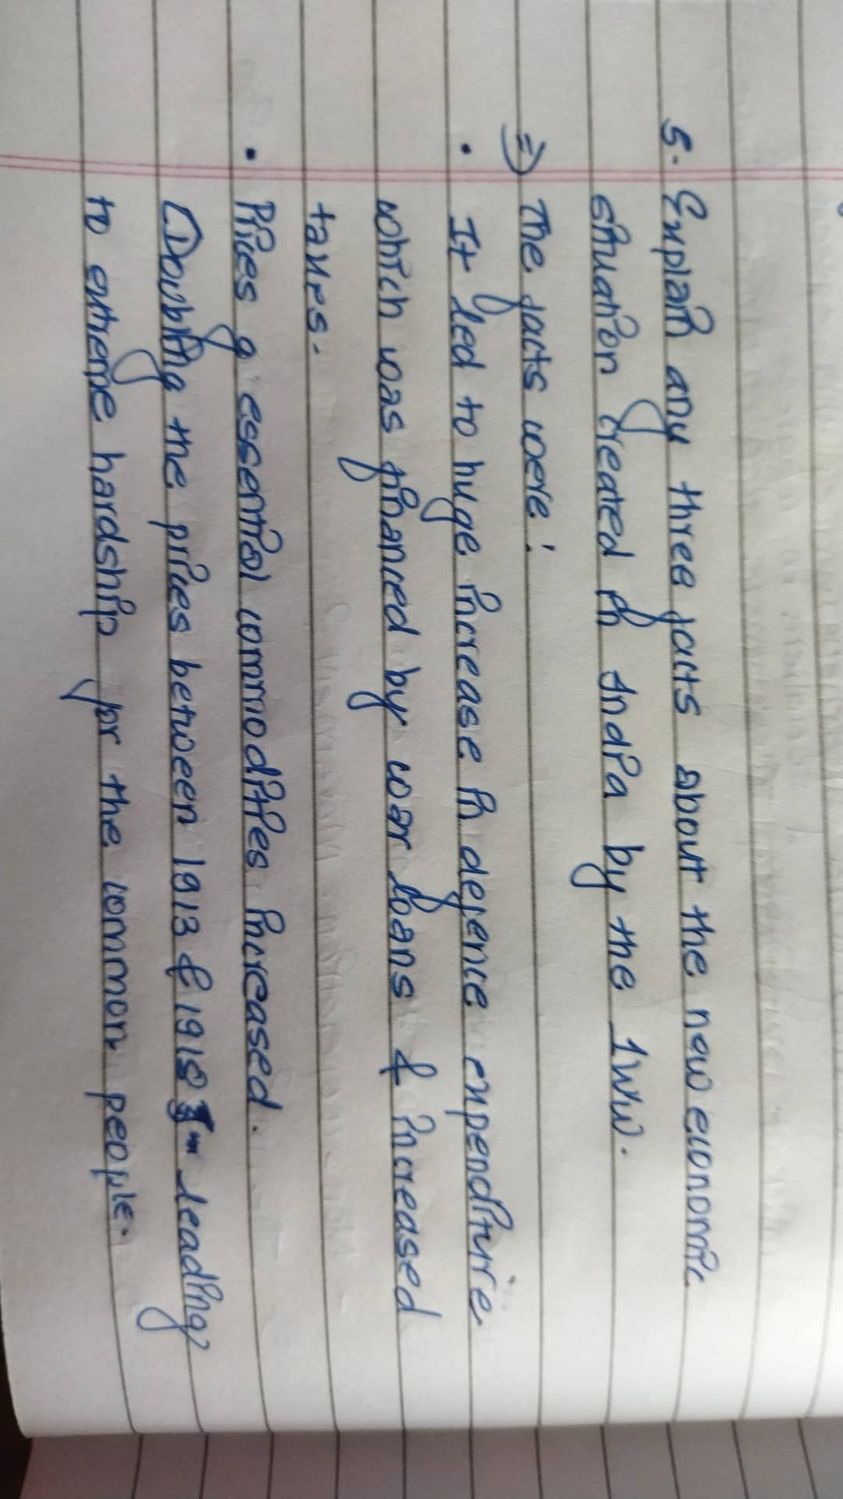 5. Explain any three facts about the new economic
situation created in India by the 1WW.
⇒ The facts were:
• It led to huge increase in defence expenditure
which was financed by war loans & increased
taxes.
• Prices of essential commodities increased.
Doubling the prices between 1913 & 1918 - leading
to extreme hardship for the common people.